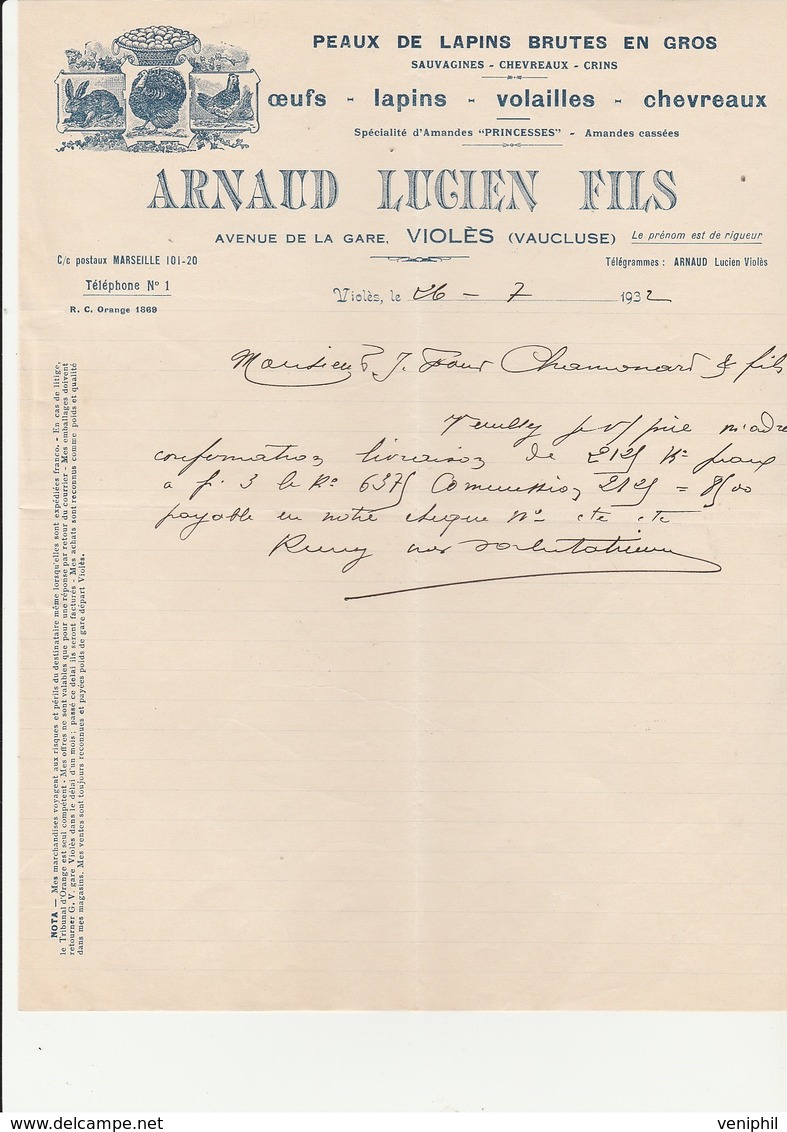 PEAUX DE LAPINS BRUTES EN GROS
SAUVAGINES - CHEVREAUX - CRINS
œufs - lapins - volailles - chevreaux
Spécialité d'Amandes "PRINCESSES" - Amandes cassées
ARNAUD LUCIEN FILS
AVENUE DE LA GARE, VIOLÈS (VAUCLUSE) Le prénom est de rigueur
C/c postaux MARSEILLE 101-20
Télégrammes : ARNAUD Lucien Violès
Téléphone N° 1
Violès, le 26 - 7 1932
R. C. Orange 1869
J. Chamonard & fils
confirmation livraison de 2125 K°
a f. 3 le K° 6375 Commission 2125 = 8500
payable en notre cheque N° etc etc
nos salutations
NOTA — Mes marchandises voyagent aux risques et périls du destinataire même lorsqu'elles sont expédiées franco. - En cas de litige,
le Tribunal d'Orange est seul compétent - Mes offres ne sont valables que pour une réponse par retour du courrier - Mes emballages doivent
retourner G. V. gare Violès dans le délai d'un mois ; passé ce délai ils seront facturés - Mes achats sont reconnus comme poids et qualité
dans mes magasins. Mes ventes sont toujours reconnues et payées poids de gare départ Violès.
veniphil